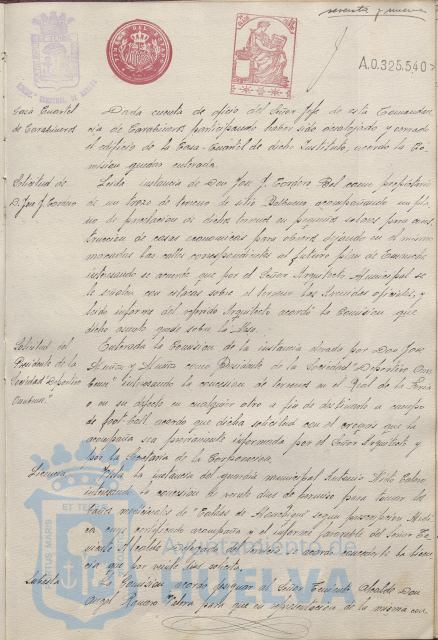 noventa y nueve
TIMBRE DEL ESTADO
A.0.325.540
Casa Cuartel
de Carabineros
Dada cuenta de oficio del Señor Jefe de esta Comandan-
cia de Carabineros participando haber sido desalojado y cerrado
el edificio de la Casa-Cuartel de dicho Instituto, acordó la Co-
misión quedar enterada.
Solicitud de
D. José J. Tordero
Leída instancia de Don José J. Tordero Rol como propietario
de un trozo de terreno al sitio acompañando un pla-
no de de dichos terrenos en pequeños solares para cons-
trucción de casas económicas para obreros dejando en el mismo
marcadas las calles correspondientes al futuro plan de Ensanche
interesando se acuerde que por el Señor Arquitecto Municipal se
le señalen con estacas sobre el terreno las oficiales, y
leído informe del referido Arquitecto acordó la Comisión que
dicho asunto quede sobre la Mesa.
Solicitud del
Presidente de la
Sociedad "Deportivo
Onubense."
Enterada la Comisión de la instancia elevada por Don José
Muñiz y Muñiz como Presidente de la Sociedad "Deportivo Onu-
bense" interesando la concesión de terrenos en el Real de la Feria
o en su defecto en cualquier otro a fin de destinarlo a campo
de foot-ball acordó que dicha solicitud con el croquis que la
acompaña sea previamente informada por el Señor Arquitecto y
por la Secretaría de la Corporación.
Licencia
Vista la instancia del guardia municipal Antonio
interesando la concesión de veinte días de permiso para tomar los
baños medicinales de según prescripción médi-
ca cuyo certificado acompaña y el informe favorable del Señor Te-
niente Alcalde Delegado del acordó concederle la licen-
cia que por veinte días solicita.
Subasta
La Comisión acordó designar al Señor Teniente Alcalde Don
Angel Romero para que en representación de la misma con-
Ayuntamiento de
HUELVA
PORTUS MARIS ET TERRAE